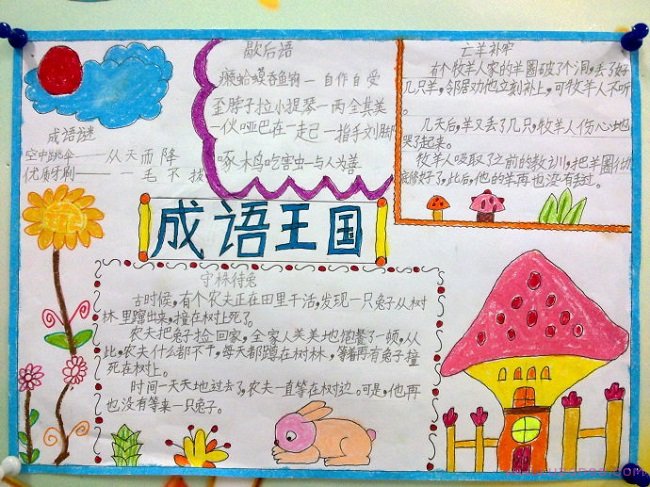 歇后语
癞蛤蟆吞鱼钩一自作自受
歪脖子拉小提琴一两全其美
一伙哑巴在一起一指手划脚
啄木鸟吃害虫一与人为善
亡羊补牢
有个牧羊人家的羊圈破了个洞,丢了好
几只羊,邻居劝他立刻补上,可牧羊人不听
。
几天后,羊又丢了几只,牧羊人伤心地
哭了起来。
牧羊人吸取了之前的教训,把羊圈
修好了,此后,他的羊再也没有丢过。
成语谜
空中跳伞——从天而降
优质牙刷——一毛不拔
成语王国
守株待兔
古时候,有个农夫正在田里干活,发现一只兔子从树
林里蹿出来,撞在树上死了。
农夫把兔子捡回家,全家人美美地饱餐了一顿,从
此,农夫什么都不干,每天都蹲在树林,等着再有兔子撞
死在树上。
时间一天天地过去了,农夫一直等在树边。可是,他再
也没有等来一只兔子。